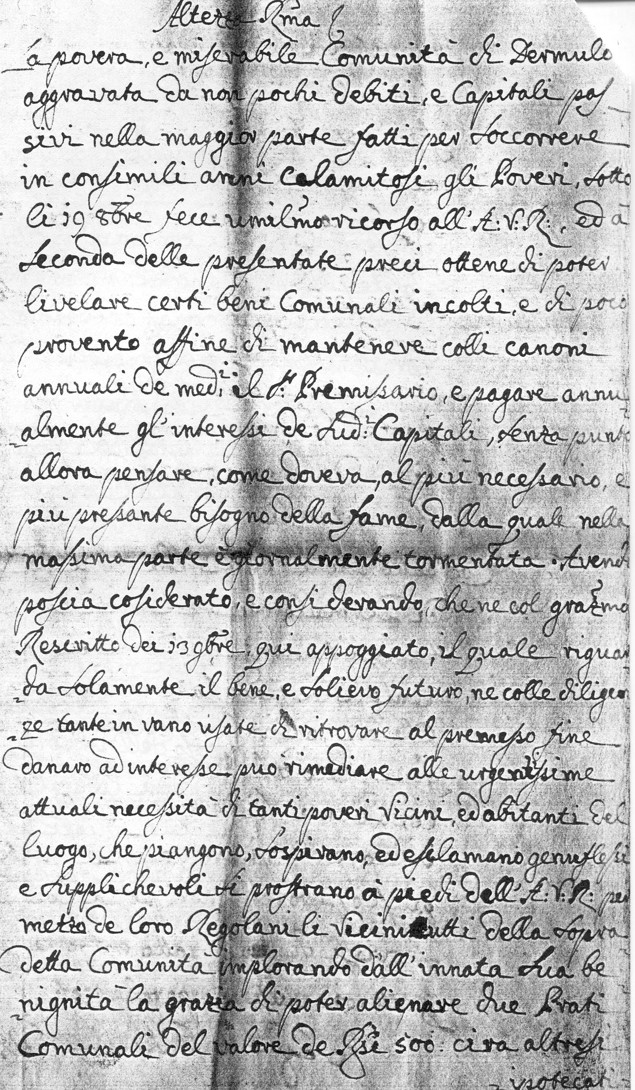 Altezza Rma
La povera, e miserabile Comunità di Dermulo
aggravata da non pochi debiti, e Capitali pas-
sivi nella maggior parte fatti per soccorrere
in consimili anni calamitosi gli Poveri, sotto
li 19 8bre fece umilmo ricorso all'A:V:R:, ed à
seconda delle presentate preci ottene di poter
livelare certi beni Comunali incolti, e di poco
provento affine di mantenere colli canoni
annuali de medi il Sr Premissario, e pagare annu
almente gl'interessi de sudi Capitali, senza punto
allora pensare, come doveva, al più necessario, e
più pressante bisogno della fame, dalla quale nella
massima parte è giornalmente tormentata. Avend
poscia cosiderato, e considerando, che ne col grazmo
Rescritto dei 13 9bre, qui appoggiato, il quale riguar
da solamente il bene, e solievo futuro, ne colle diligen
ze tante in vano usate di ritrovare al premesso fine
danaro ad interesse può rimediare alle urgentissime
attuali necessità di tanti poveri Vicini, ed abitanti del
luogo, che piangono, sospirano, ed esclamano genuflessi
e supplichevoli si prostrano à piedi dell'A:V:R: per
mezzo de loro Regolani li Vicini tutti della sopra
detta Comunità implorando dall'innata sua be
nignità la grazia di poter alienare due Prati
Comunali del valore de Rsi 500: cira altresi
ipotecati